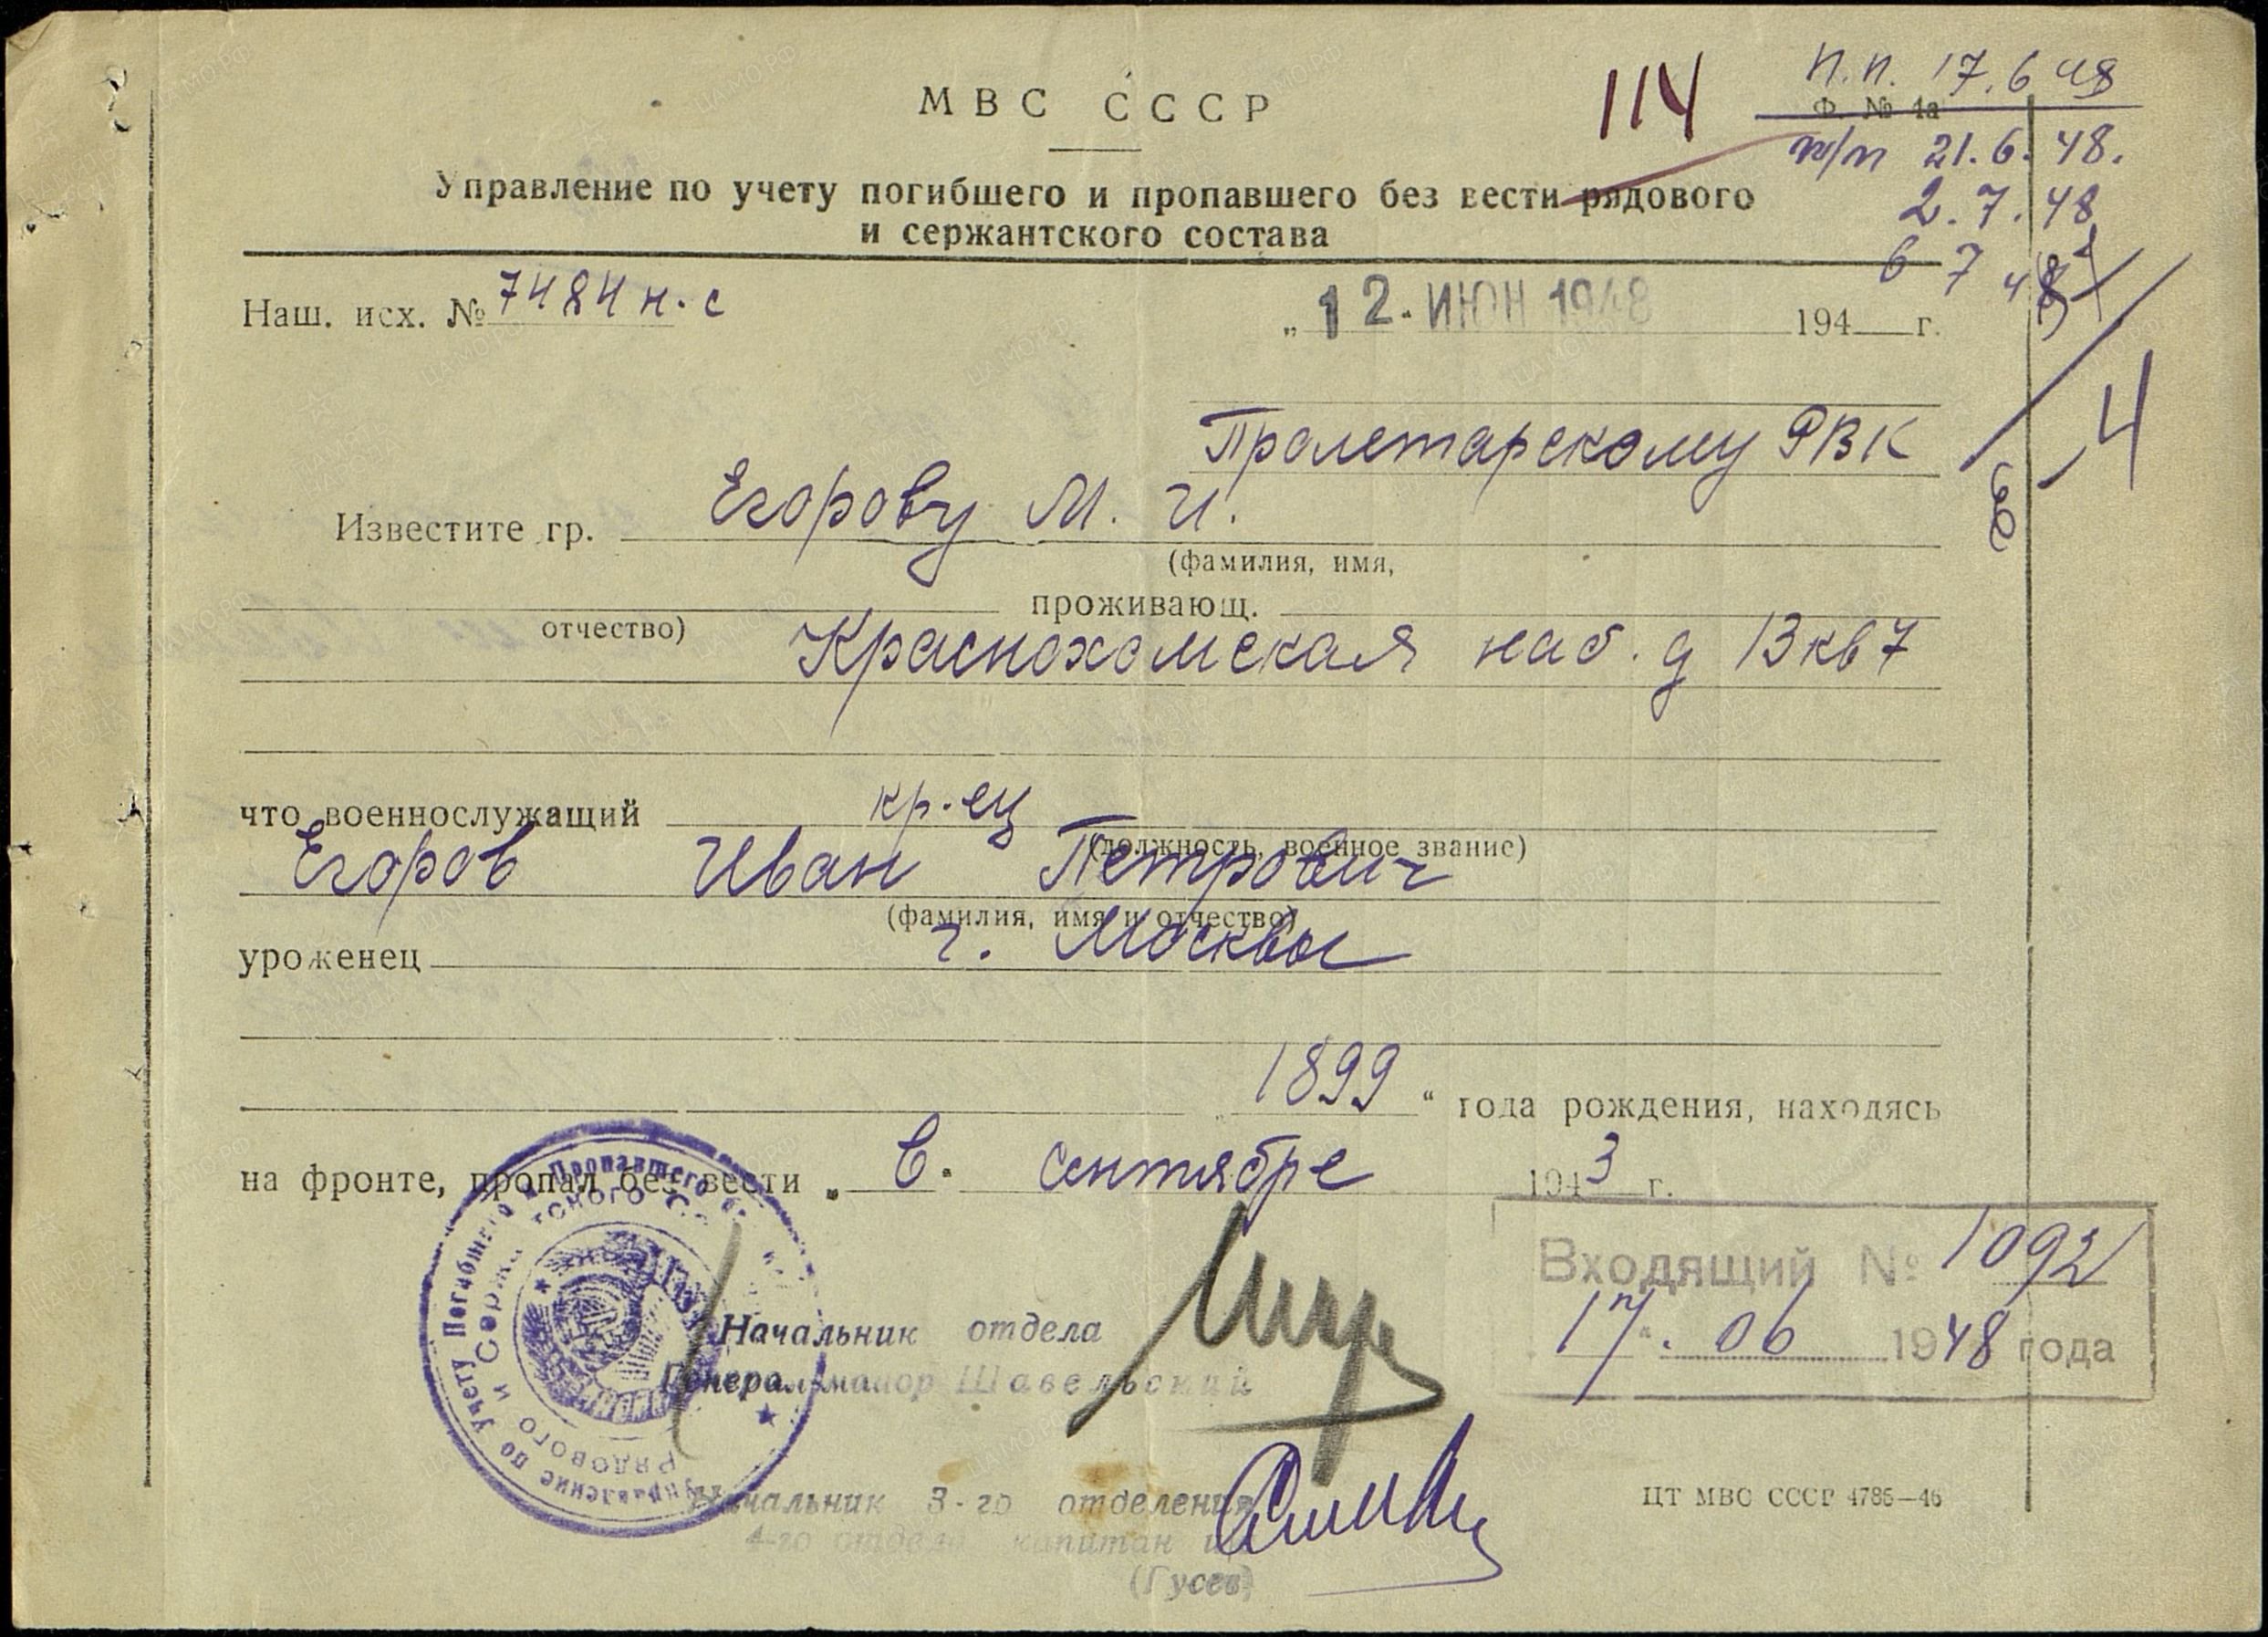 МВС СССР
114
п.п. 17.6 48
Ф. № 1а
п/п 21.6.48.
2.7.48
6 7 48
Управление по учету погибшего и пропавшего без вести рядового
и сержантского состава
Наш. исх. № 7484 н.с
„12. ИЮН 1948 194 г.
4
Пролетарскому РВК
Известите гр. Егорову М. И.
(фамилия, имя,
проживающ.
отчество)
Краснохолмская наб. д 13 кв 7
что военнослужащий кр-ец
(должность, военное звание)
Егоров Иван Петрович
(фамилия, имя и отчество)
уроженец г. Москвы
„ 1899 “ года рождения, находясь
на фронте, пропал без вести „ в. сентябре 1943 г.
Управление по учету Погибшего и Пропавшего
Рядового и Серж
Входящий № 1092
17. 06 1948 года
Начальник отдела
Генерал-майор Шавельский
Начальник 3-го отделения
4-го отдела капитан
(Гусев)
ЦТ МВС СССР 4785—46